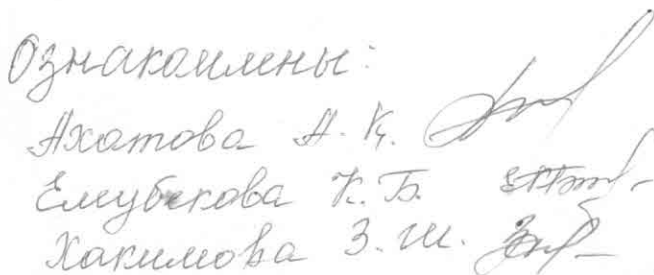 Ознакомлены:
Ахатова А. Қ.
Емубекова К. Б.
Хакимова З. Ш.